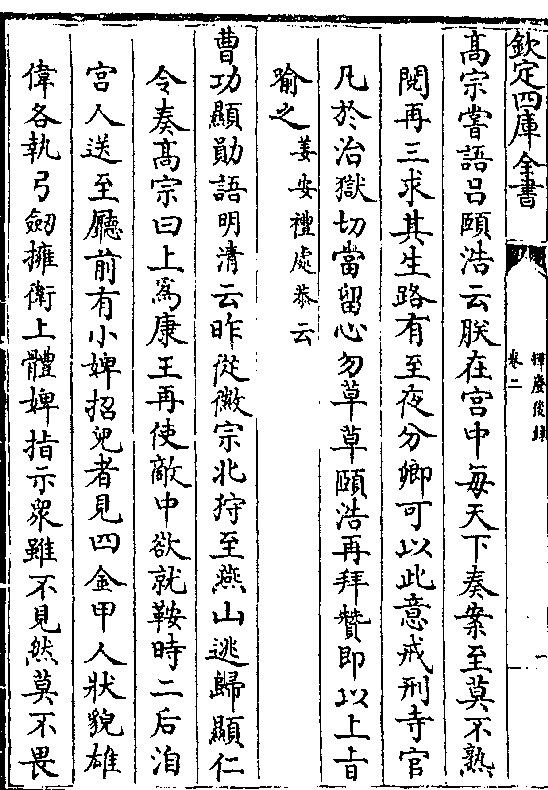 欽定四庫全書
揮麈後録
卷二
一
髙宗嘗語吕頤浩云朕在宫中每天下奏案至莫不熟
閱再三求其生路有至夜分卿可以此意戒刑寺官
凡於治獄切當留心勿草草頤浩再拜贊即以上㫖
喻之姜安禮處恭云
曹功顯勛語明清云昨從徽宗北狩至燕山逃歸顯仁
令奏髙宗曰上為康王再使敵中欲就鞍時二后洎
宫人送至廳前有小婢招兒者見四金甲人狀貌雄
偉各執弓劒擁衛上體婢指示衆雖不見然莫不畏